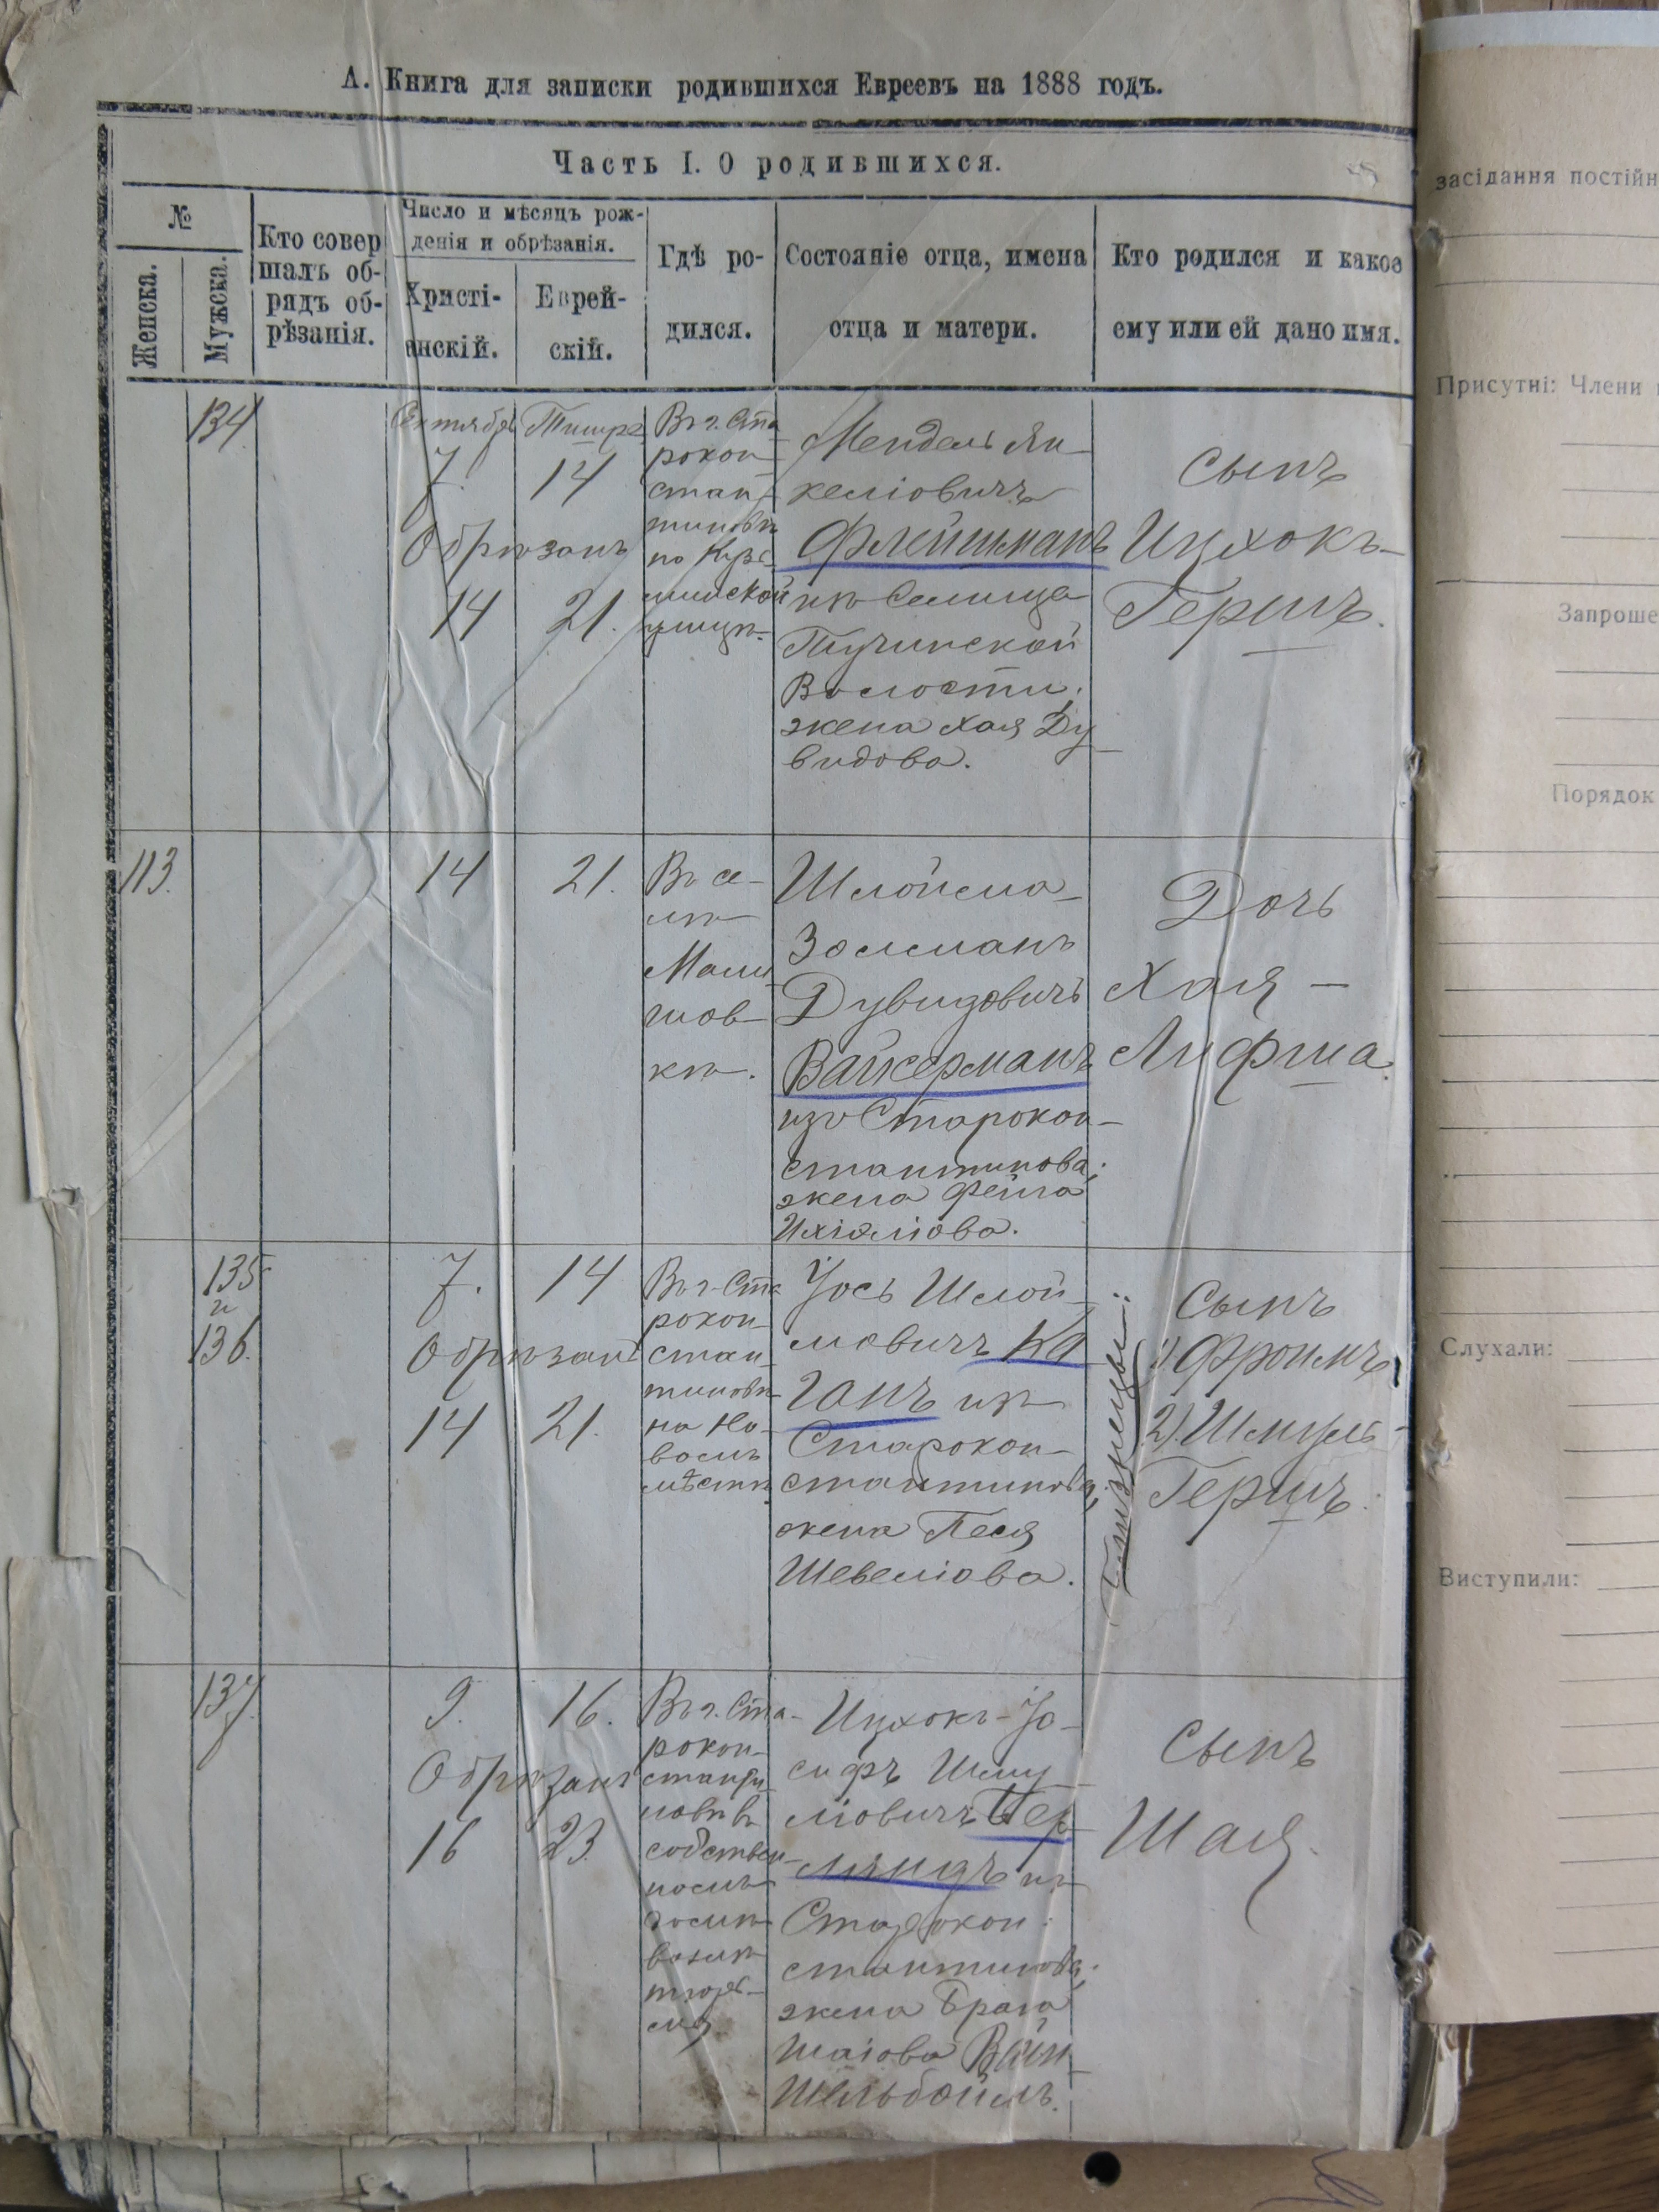 А. Книга для записки родившихся Евреевъ на 1888 годъ.
Часть I. О родившихся.
№
Женска.
Мужска.
Кто совер
шалъ об-
рядъ об-
рѣзанія.
Число и мѣсяцъ рож-
денія и обрѣзанія.
Христі-
анскій.
Еврей-
скій.
Гдѣ ро-
дился.
Состояніе отца, имена
отца и матери.
Кто родился и какое
ему или ей дано имя.
134
Сентября
7.
Обрѣзанъ
14
Тишре
14
21.
Въ г. Ста
рокон
стан
тиновѣ
по
улицѣ.
Мендель Ян
келіовичъ
Флейшманъ
изъ Селища
Волости,
жена Хая Ду
видова.
Сынъ
Ицхокъ-
Гершъ.
113.
14
21.
Въ се-
лѣ
Мани
вкѣ.
Шлойма-
Золманъ
Дувидовичъ
Вайсерманъ
изъ Старокон-
стантинова,
жена Фейга
Ихіэліова.
Дочь
Хая -
Лифша.
135
и
136.
7.
Обрѣзаны
14
14
21.
Въ г. Ста
рокон
стан
тиновѣ
на Но
вомъ
мѣстѣ.
Іось Шлой
мовичъ Ка
ганъ изъ
Старокон-
стантинова,
жена Песя
Шевеліова.
Близнецы:
Сынъ
1) Фроимъ
2) Шмуль-
Гершъ.
137.
9.
Обрѣзанъ
16
16.
23.
Въ г. Ста-
рокон-
станти
новѣ въ
собствен-
номъ
домѣ
возлѣ
тюрь-
мы.
Ицхокъ-Іо-
сифъ Шму
ліовичъ Пер
изъ
Старокон-
стантинова,
жена
Шаіова Вай
Сынъ
Шая.
засідання постійн
Присутні: Члени
Запроше
Порядок
Слухали:
Виступили: